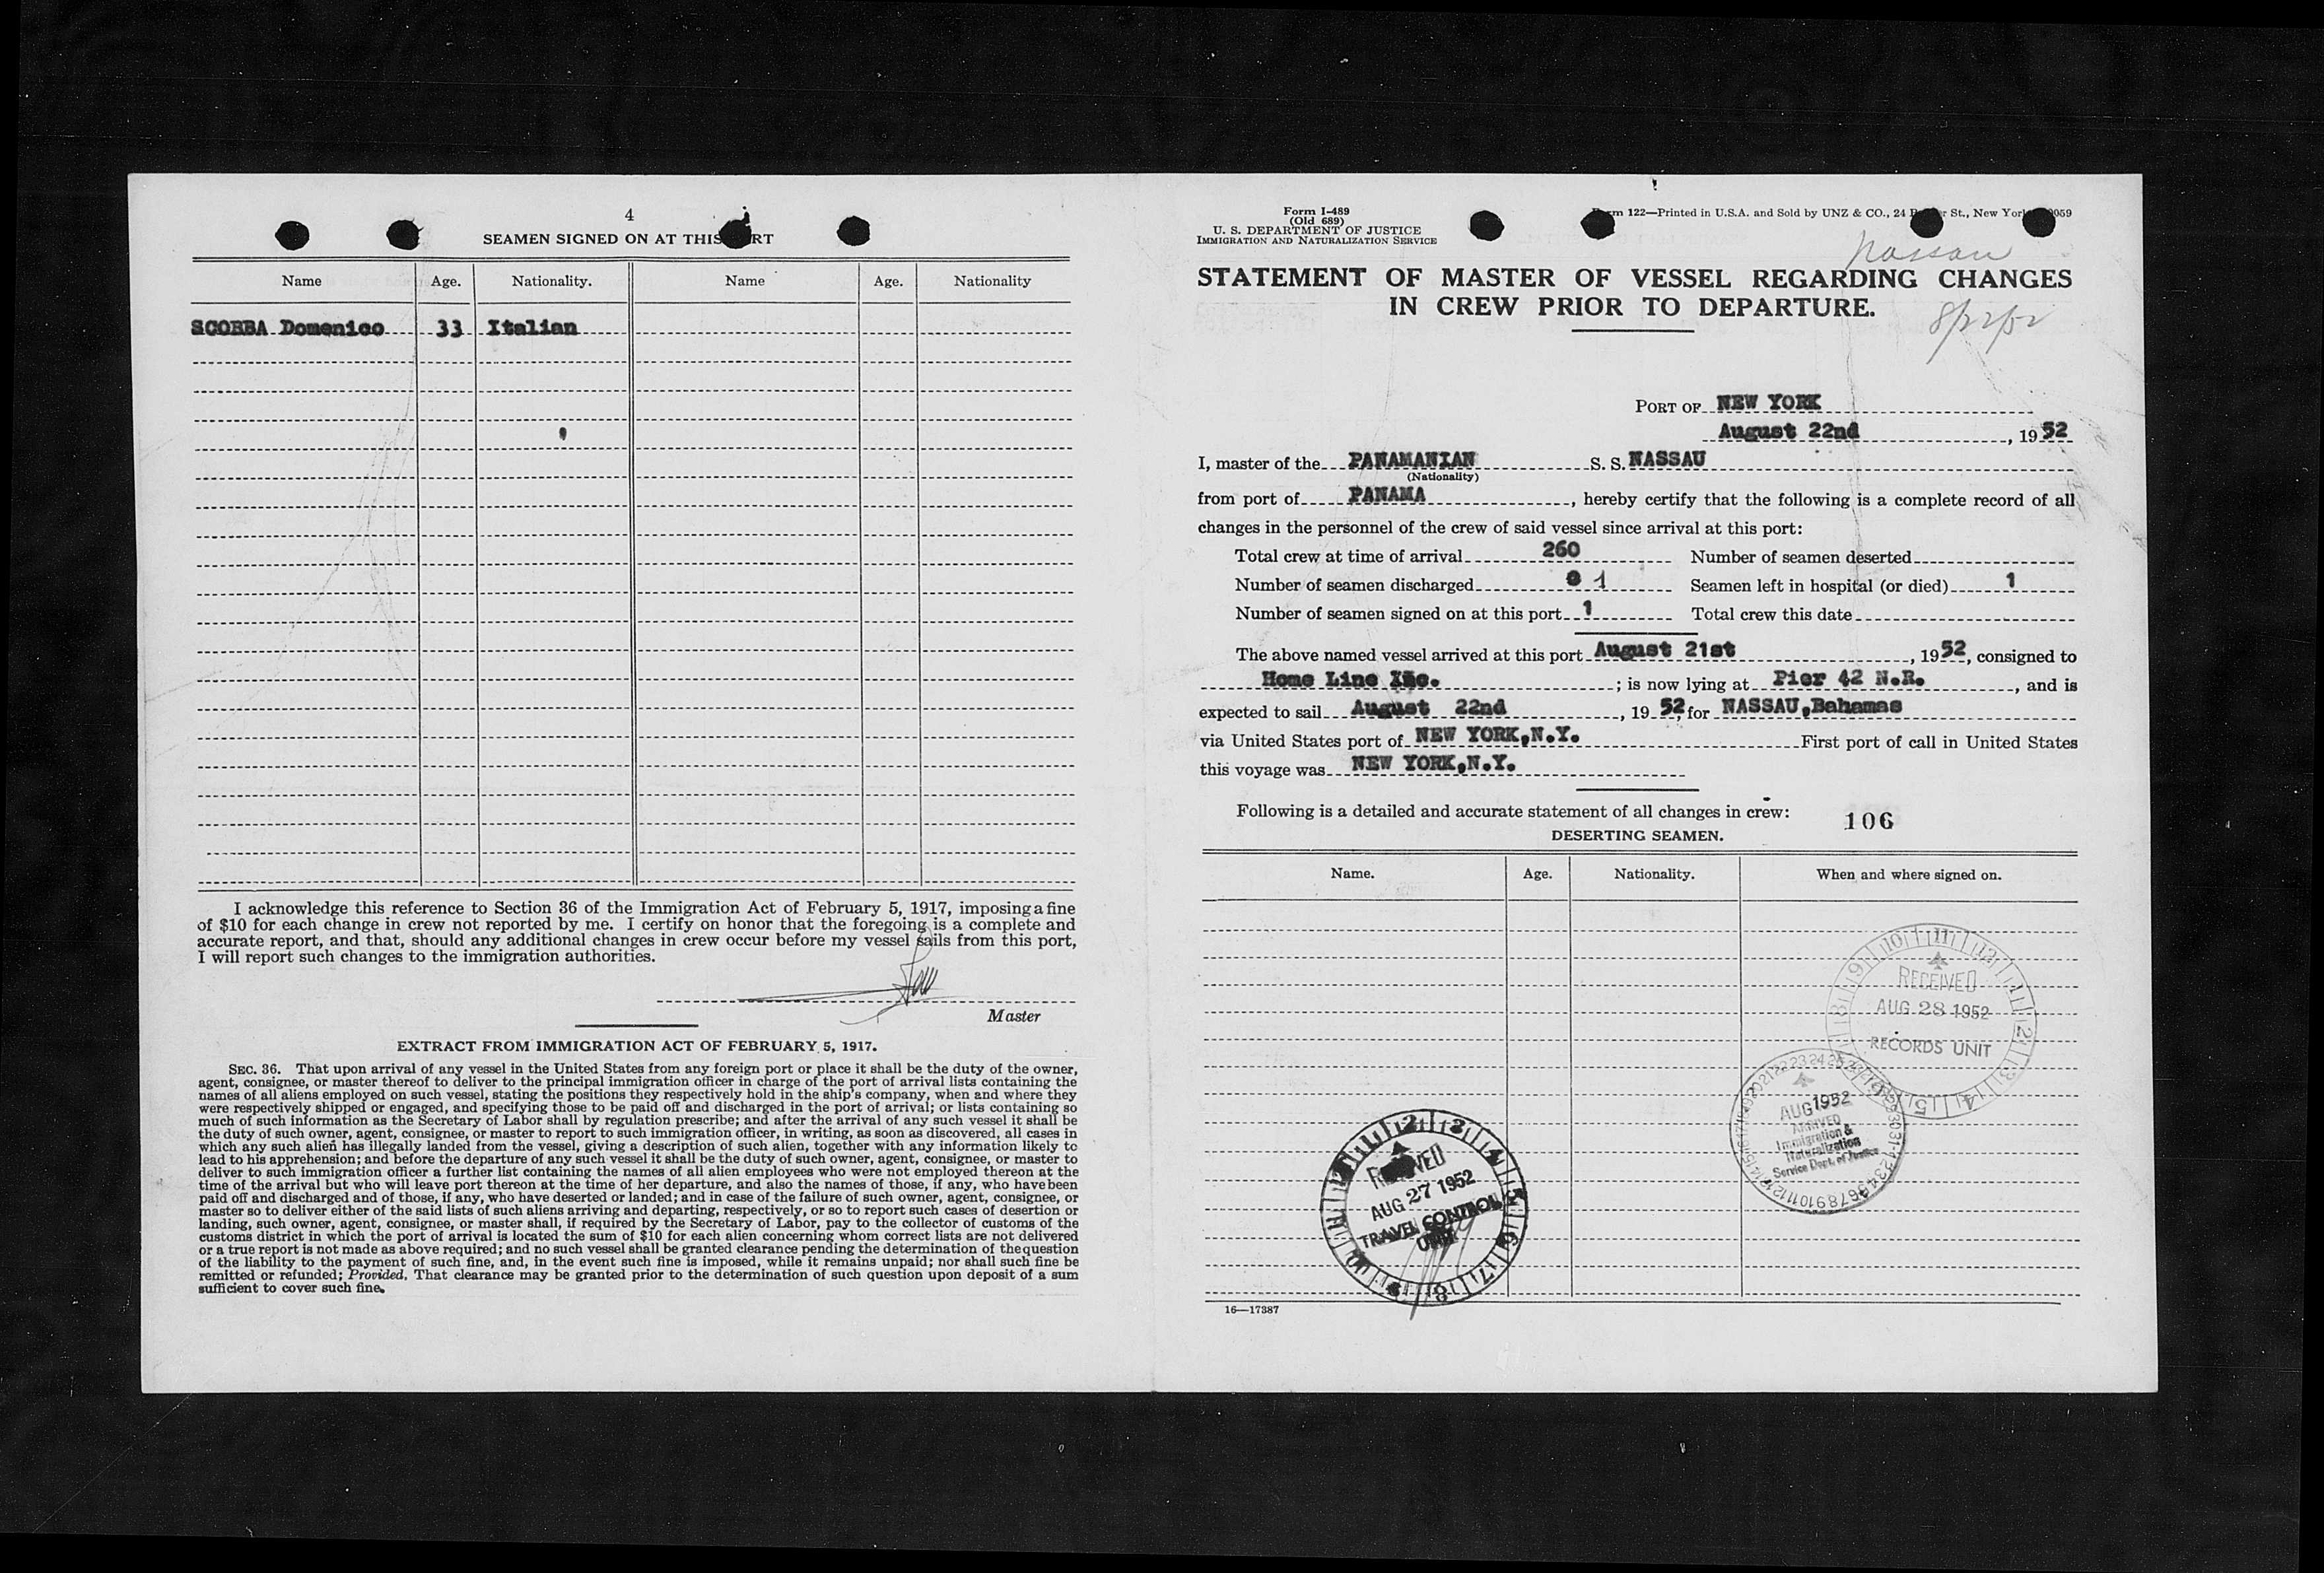 4
SEAMEN SIGNED ON AT THIS PORT
Name Age. Nationality. Name Age. Nationality
SCOBBA Domenico 33 Italian
I acknowledge this reference to Section 36 of the Immigration Act of February 5, 1917, imposing a fine
of $10 for each change in crew not reported by me. I certify on honor that the foregoing is a complete and
accurate report, and that, should any additional changes in crew occur before my vessel sails from this port,
I will report such changes to the immigration authorities.
Master
EXTRACT FROM IMMIGRATION ACT OF FEBRUARY 5, 1917.
SEC. 36. That upon arrival of any vessel in the United States from any foreign port or place it shall be the duty of the owner,
agent, consignee, or master thereof to deliver to the principal immigration officer in charge of the port of arrival lists containing the
names of all aliens employed on such vessel, stating the positions they respectively hold in the ship's company, when and where they
were respectively shipped or engaged, and specifying those to be paid off and discharged in the port of arrival; or lists containing so
much of such information as the Secretary of Labor shall by regulation prescribe; and after the arrival of any such vessel it shall be
the duty of such owner, agent, consignee, or master to report to such immigration officer, in writing, as soon as discovered, all cases in
which any such alien has illegally landed from the vessel, giving a description of such alien, together with any information likely to
lead to his apprehension; and before the departure of any such vessel it shall be the duty of such owner, agent, consignee, or master to
deliver to such immigration officer a further list containing the names of all alien employees who were not employed thereon at the
time of the arrival but who will leave port thereon at the time of her departure, and also the names of those, if any, who have been
paid off and discharged and of those, if any, who have deserted or landed; and in case of the failure of such owner, agent, consignee, or
master so to deliver either of the said lists of such aliens arriving and departing, respectively, or so to report such cases of desertion or
landing, such owner, agent, consignee, or master shall, if required by the Secretary of Labor, pay to the collector of customs of the
customs district in which the port of arrival is located the sum of $10 for each alien concerning whom correct lists are not delivered
or a true report is not made as above required; and no such vessel shall be granted clearance pending the determination of the question
of the liability to the payment of such fine, and, in the event such fine is imposed, while it remains unpaid; nor shall such fine be
remitted or refunded; Provided, That clearance may be granted prior to the determination of such question upon deposit of a sum
sufficient to cover such fine.
Form I-489
(Old 689)
U. S. DEPARTMENT OF JUSTICE
IMMIGRATION AND NATURALIZATION SERVICE
Form 122—Printed in U.S.A. and Sold by UNZ & CO., 24 St., New York
Nassau
STATEMENT OF MASTER OF VESSEL REGARDING CHANGES
IN CREW PRIOR TO DEPARTURE.
8/22/52
PORT OF NEW YORK
August 22nd, 1952
I, master of the PANAMANIAN S. S. NASSAU
(Nationality)
from port of PANAMA, hereby certify that the following is a complete record of all
changes in the personnel of the crew of said vessel since arrival at this port:
Total crew at time of arrival 260 Number of seamen deserted
Number of seamen discharged 1 Seamen left in hospital (or died) 1
Number of seamen signed on at this port 1 Total crew this date
The above named vessel arrived at this port August 21st, 1952, consigned to
Home Line Inc. ; is now lying at Pier 42 N.R., and is
expected to sail August 22nd, 1952, for NASSAU,Bahamas
via United States port of NEW YORK,N.Y. First port of call in United States
this voyage was NEW YORK,N.Y.
Following is a detailed and accurate statement of all changes in crew:
106
DESERTING SEAMEN.
Name. Age. Nationality. When and where signed on.
RECEIVED
AUG 28 1952
RECORDS UNIT
AUG 1952
ARRIVED
Immigration &
Naturalization
Service Dept. of Justice
RECEIVED
AUG 27 1952
TRAVEL CONTROL
UNIT
16—17387